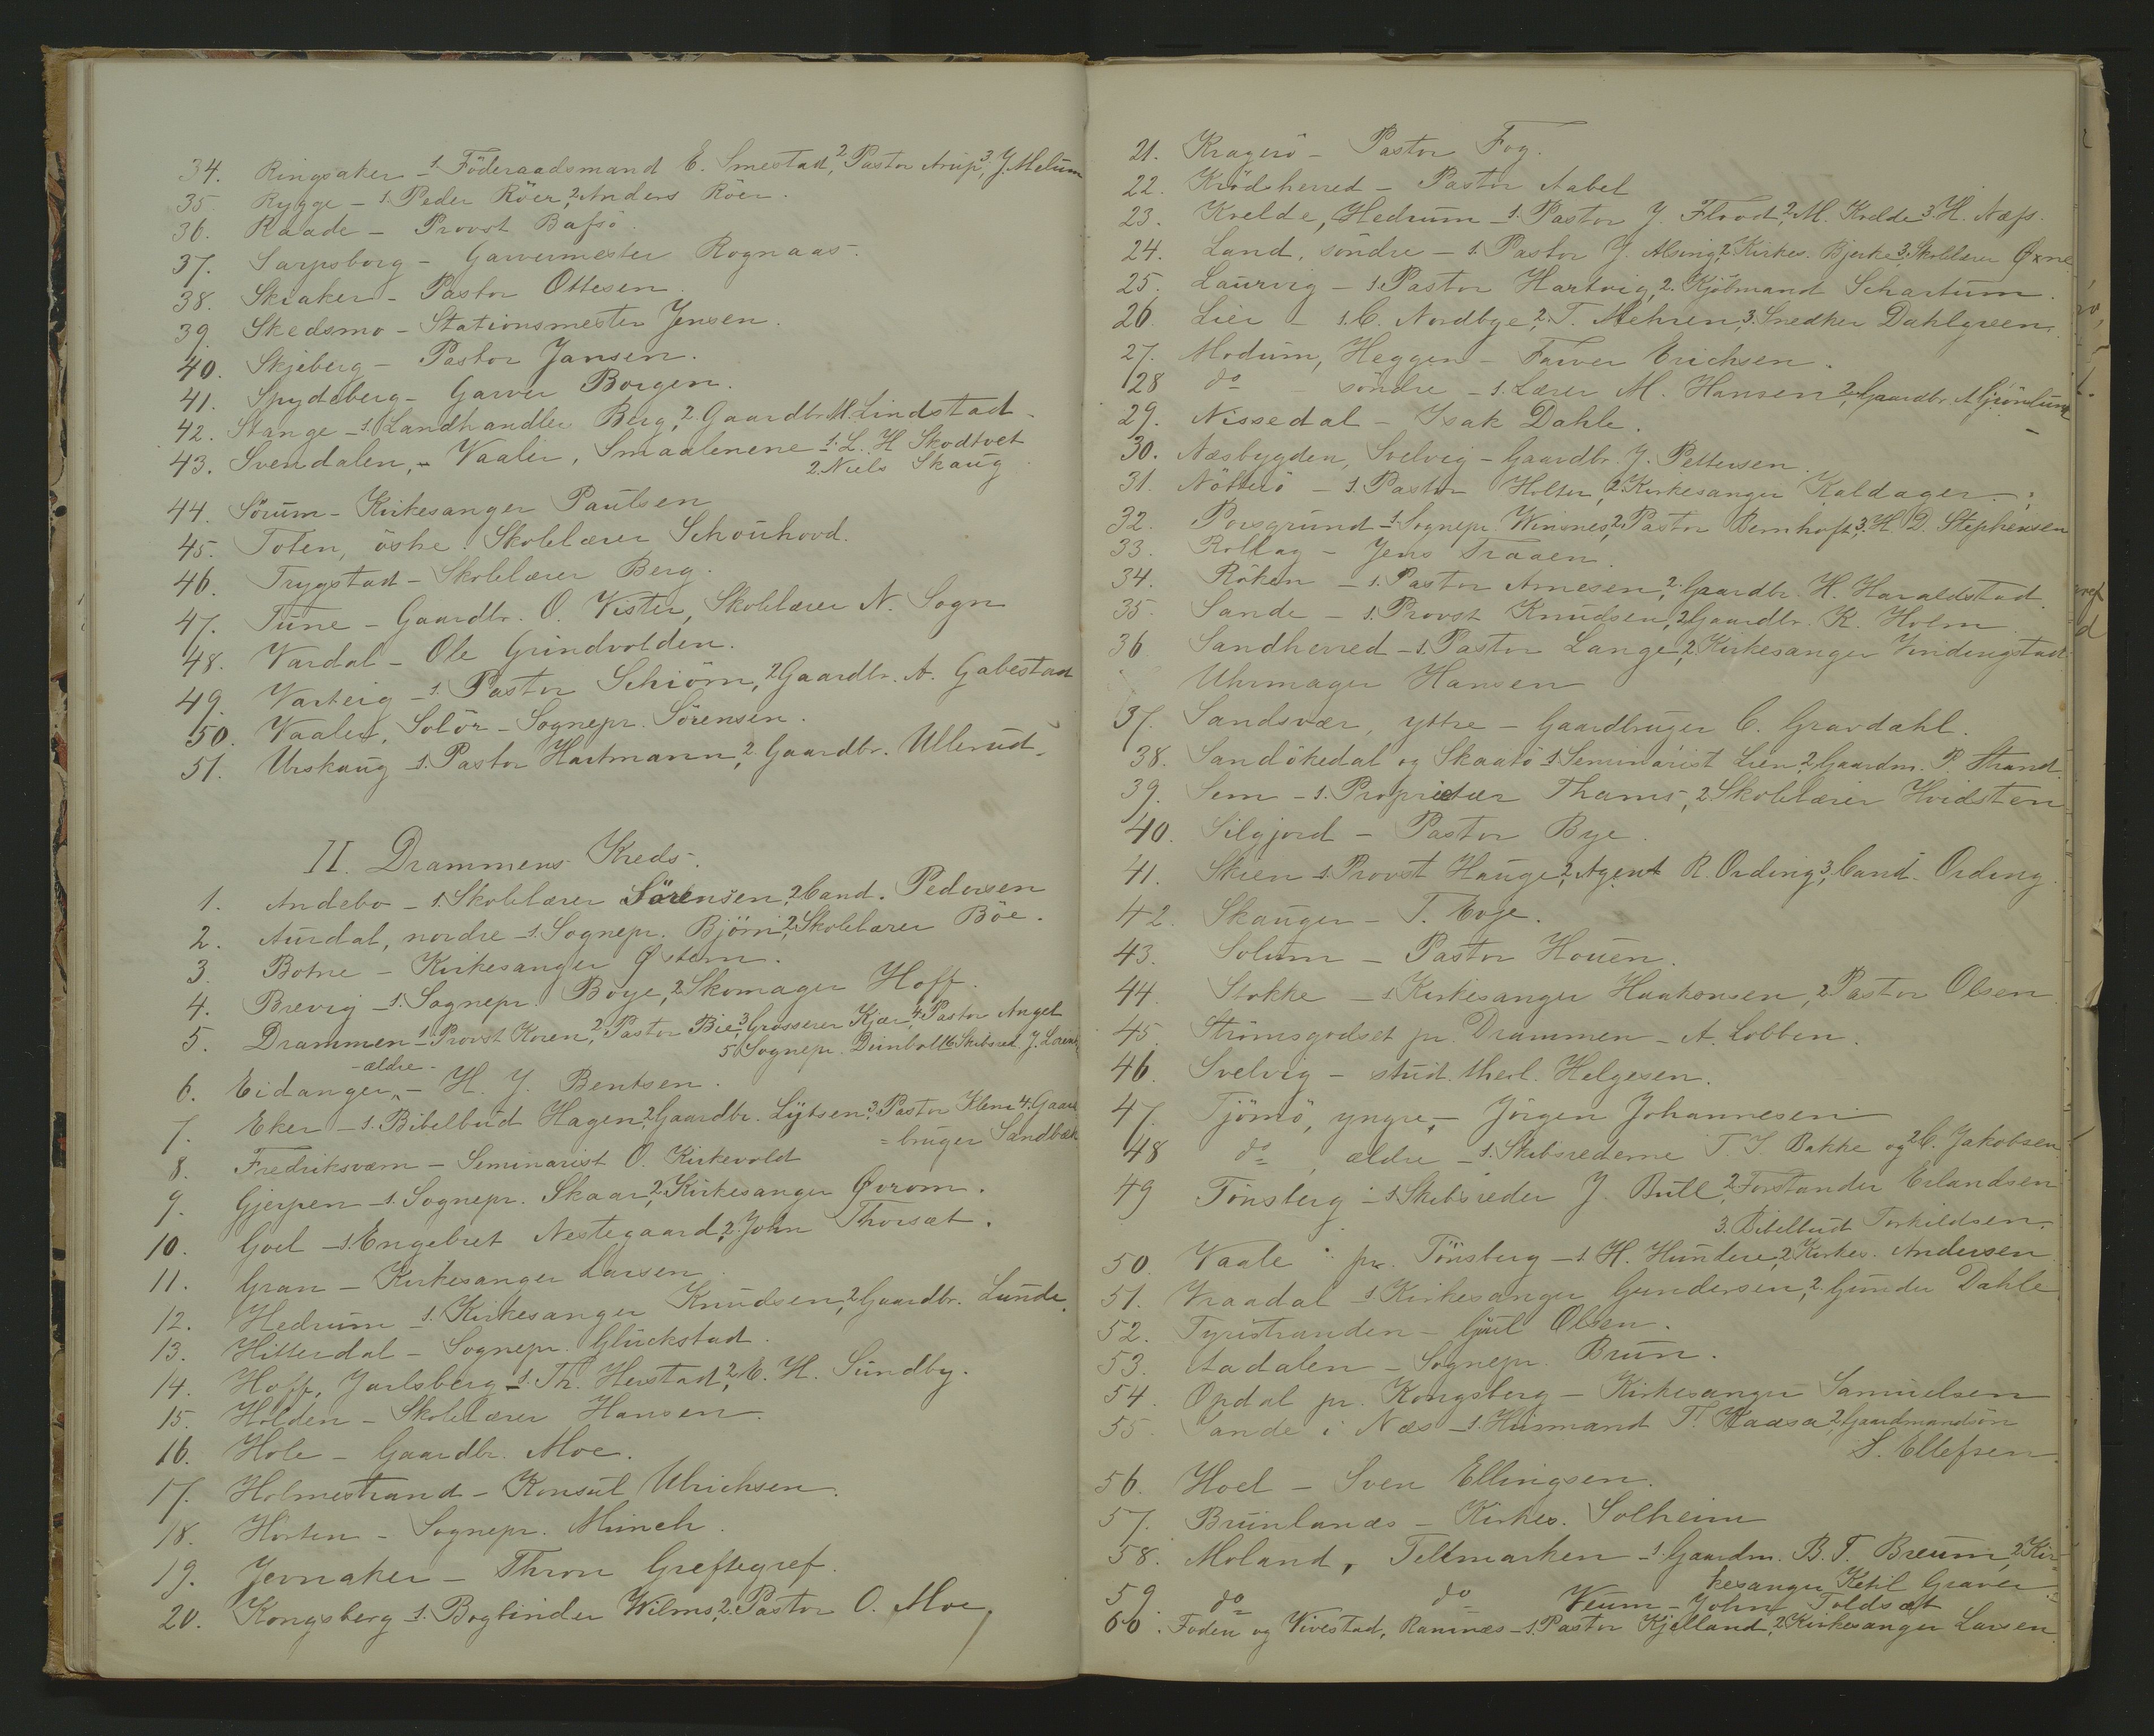 34. Ringsaker - 1. Föderaadsmand E. Smestad, 2. Pastor Arup, 3. J. Melum
35. Rygge - 1. Peder Röer, 2. Anders Röer.
36. Raade - Provst Bassö.
37. Sarpsborg - Garvermester Rognaas.
38. Skiaker - Pastor Ottesen.
39. Skedsmo - Stationsmester Jensen.
40. Skjeberg - Pastor Jansen.
41. Spydeberg - Garver Borgen.
42. Stange - 1. Landhandler Berg, 2. Gaardbr. M. Lindstad.
43. Svendalen, - Vaaler, Smaalenene - 1. L. H. Skodtvet
2. Niels Skaug
44. Sörum - Kirkesanger Paulsen
45. Toten, östre. Skolelærer Schouhovd.
46. Trygstad - Skolelærer Berg.
47. Tune - Gaardbr. O. Vister, Skolelærer N. Sogn
48. Vardal - Ole Grindvolden.
49. Varteig - 1. Pastor Schiörn, 2. Gaardbr. A. Gabestad
50. Vaaler, Solör - Sognepr. Sörensen.
51. Urskaug - 1. Pastor Hartmann, 2. Gaardbr. Ullerud.
II. Drammens Kreds.
1. Andebo - 1. Skolelærer Sörensen, 2. Cand. Pedersen
2. Aurdal, nordre - 1. Sognepr. Björn, 2. Skolelærer Böe.
3. Botne - Kirkesanger Østern.
4. Brevig - 1. Sognepr. Boye, 2. Skomager Hoff.
5. Drammen - 1. Provst Koren, 2. Pastor Bie, 3. Grosserer Kjær, 4. Pastor Angel
5. Sognepr. 6. Skibsred. J.
-ældre-
6. Eidanger, - H. J. Bentsen.
7. Eker - 1. Bibelbud Hagen, 2. Gaardbr. Lijtsen, 3. Pastor Klem 4. Gaard
=bruger Sandbæk
8. Fredriksværn - Seminarist O. Kirkevold
9. Gjerpen - 1. Sognepr. Skaar, 2. Kirkesanger Øvrom.
10. Goel - 1. Engebret Nestegaard, 2. John Thorsæt.
11. Gran - Kirkesanger Larsen.
12. Hedrum - 1. Kirkesanger Knudsen, 2. Gaardbr. Lunde.
13. Hitterdal - Sognepr. Gluckstad.
14. Hoff, Jarlsberg - 1. Th. Herstad, 2. E. H. Sundby.
15. Holden - Skolelærer Hansen.
16. Hole - Gaardbr. Moe.
17. Holmestrand - Konsul Ulrichsen.
18. Horten - Sognepr. Munch.
19. Jevnaker - Thron Greftegref.
20. Kongsberg 1. Bogbinder Wilms, 2. Pastor O. Moe
21. Kragerö - Pastor Fog.
22. Krödsherred - Pastor Aabel
23. Kvelde, Hedrum - 1. Pastor J. Flood, 2. M. Kvelde 3. H. Næss.
24. Land, söndre - 1. Pastor J. Alsing, 2. Kirkes. Bjerke 3. Skolelærer Øxne
25. Laurvig - 1. Pastor Hartvig, 2. Kjöbmand Schartum.
26. Lier - 1. C. Nordbye, 2. T. Mehren, 3. Snedker Dahlgreen.
27. Modum, Heggen - Farver Erichsen.
28 do söndre - 1. Lærer M. Hansen 2. Gaardbr. A. Grönlund
29. Nissedal - Isak Dahle.
30. Næsbygden, Svelvig - Gaardbr. J. Pettersen.
31. Nötterö - 1. Pastor Holter, 2. Kirkesanger Kaldager.
32. Porsgrund - 1. Sognepr. Winsnes, 2. Pastor Bernhoft, 3. H. D. Stephensen
33. Rollag - Jens Traaen.
34. Röken - 1. Pastor Arnesen, 2. Gaardbr. H. Haraldstad.
35. Sande - 1. Provst Knudsen, 2. Gaardbr. K. Holm.
36 Sandherred - 1. Pastor Lange, 2. Kirkesanger Vindingstad
Uhrmager Hansen
37. Sandsvær, ytre - Gaardbruger C. Gravdahl.
38. Sandökedal og Skaatö 1. Seminarist Lien, 2. Gaardm. P. Strand.
39. Sem - 1. Proprietær Thams, 2. Skolelærer Hvidsten
40. Silgjord - Pastor Bye.
41. Skien 1. Provst Hauge, 2. Agent R. Ording 3. Cand. Ording.
42. Skauger - T. Evje.
43. Solum - Pastor Houen.
44 Stokke - 1. Kirkesanger Haakonsen, 2. Pastor Olsen
45. Strömsgodset pr. Drammen - A. Lobben.
46. Svelvig - stud. theol. Helgesen.
47. Tjömö, yngre, - Jörgen Johannesen
48 do, ældre - 1. Skibsrederne T. S. Bakke og 2. C. Jakobsen
49 Tönsberg - 1. Skibsreder J. Bull, 2. Forstander Erlandsen
3. Bibelbud Torkildsen.
50. Vaale pr. Tönsberg - 1. H. Hundere, 2. Kirkes. Andersen
51. Vraadal 1. Kirkesanger Gundersen, 2. Gunder Dahle
52. Tyristranden - Gjul Olsen.
53. Aadalen - Sognepr. Brun.
54. Opdal pr. Kongsberg - Kirkesanger Samuelsen
55. Sande i Næs - 1. Husmand T. Haasa, 2. Gaardmandsön
S. Ellefsen.
56. Hoel - Sven Ellingsen.
57. Brunlanæs - Kirkes. Solheim
58. Moland, Tellmarken - 1. Gaardm. B. T. Breum, 2. Kir-
kesanger Ketil Graver
59 do do Veum - John Toldsæt
60. Foden og Vivestad, Ramnæs - 1. Pastor Kjelland, 2. Kirkesanger Larsen